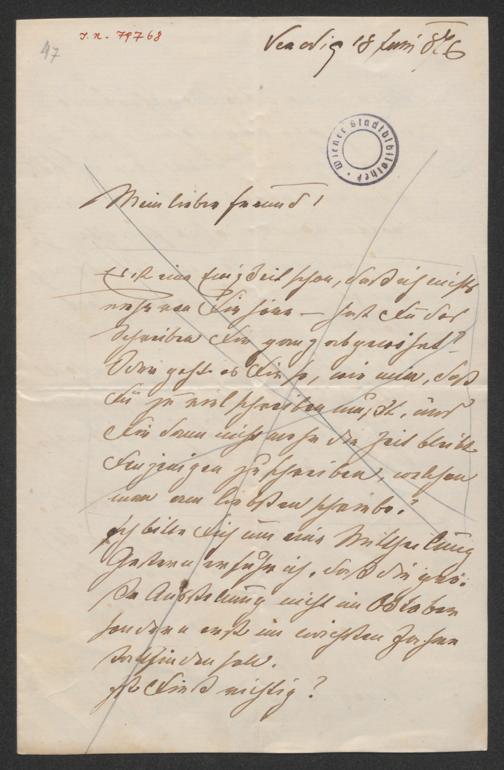 47
I. N. 79768
Venedig 18 Juni 86
Wiener Stadtbibliothek
Mein lieber Freund!
Es ist eine Zeit schon, daß ich nichts
mehr von Dir höre – hast Du das
Schreiben Dir ganz abgewöhnt?
Oder geht es Dir so, wie mir, daß
Du zu viel schreiben mußt, und
Dir dann nicht mehr die Zeit bleibt
Denjenigen zu schreiben, welchen
man am liebsten schreibe?
Ich bitte Dich um eine Mittheilung
Gestern erfuhr ich, daß die gro-
ße Ausstellung nicht im Oktober
sondern erst im nächsten Jahre
stattfinden soll.
Ist dieß richtig?